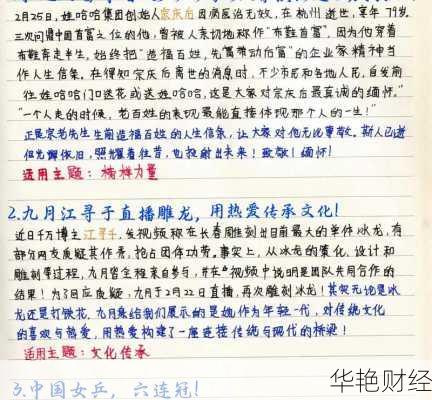 2月25日,娃哈哈集团创始人宗庆后因病医治无效,在杭州逝世,享年79岁。
三次问鼎中国首富之位的他,曾被人亲切地称作“布鞋首富”,因为他穿着
布鞋奔走半生,始终把“造福百姓,先富带动后富”的企业家精神当
作人生信条。在得知宗庆后离世的消息时,不少市民和各地人民,自发前
往娃哈哈门口送花或送娃哈哈,这是大家对宗庆后最真诚的缅怀。”
“一个人走的时候,老百姓的表现最能直接体现那个人的一生!”
正是宗老先生生前造福百姓的人生信条,让大家对他无比尊敬。斯人已逝
但光辉依旧,照耀着往昔,也投射出未来!致敬!缅怀!
适用主题:榜样力量
2.九月江寻于直播雕龙,用热爱传承文化!
近日千万博主江寻千,发视频称在长春雕刻出目前最大的单件冰龙,有
部分网友质疑其作秀,抢占团体功劳。事实上,从冰龙的策化、设计和
雕刻等过程,九月皆全程亲自参与,并在视频中说明是团队共同合作的
结果!为了回应质疑,九月于2月22日直播,再次雕刻冰龙!其实无论是冰
龙还是打铁花,九月乘给我们展示的是她作为年轻一代,对传统文化
的喜欢与热爱,用热爱构建了一座连接传统与现代的桥梁!
适用主题:文化传承
3.中国女乒,六连冠!
华艳财经